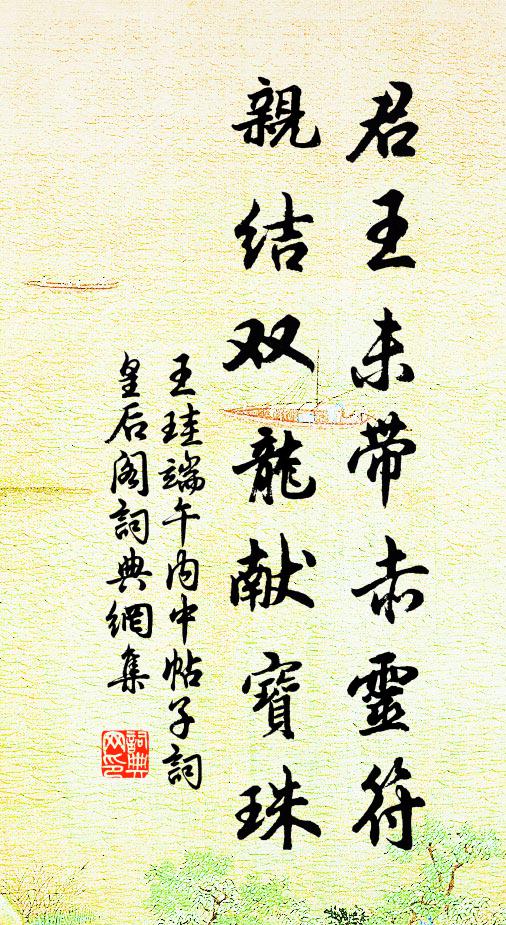 君王未带赤靈符
親结双龍献寶珠
王珪端午内中帖子詞
皇后阁詞典網集
詞典网印